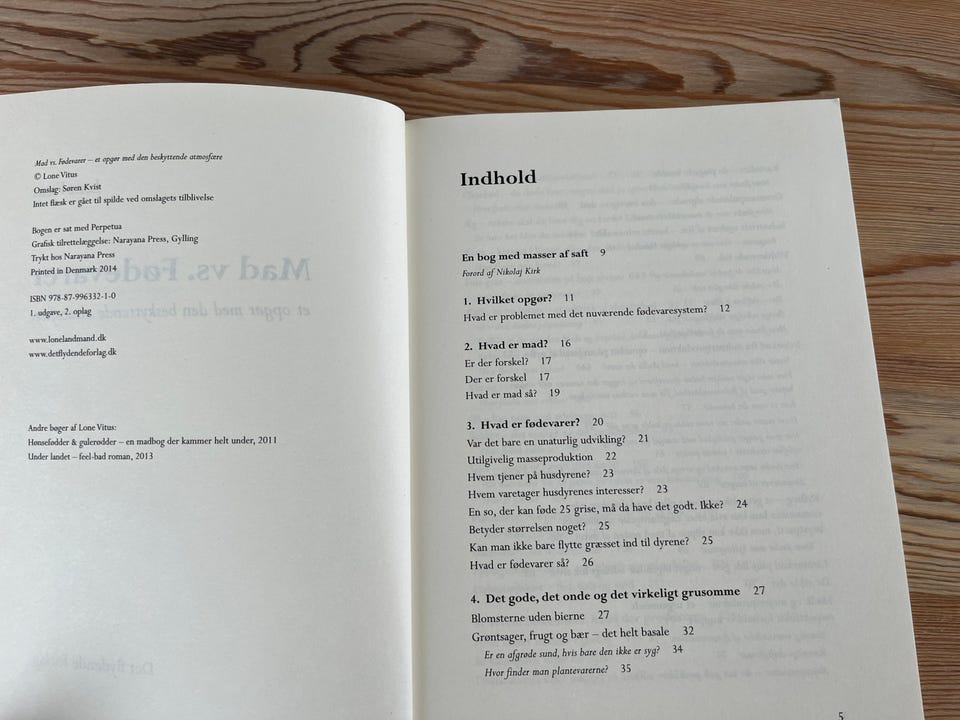 Mad vs. Fødevarer – et opgør med den beskyttende atmosfære
© Lone Vitus
Omslag: Søren Kvist
Intet flæsk er gået til spilde ved omslagets tilblivelse
Bogen er sat med Perpetua
Grafisk tilrettelæggelse: Narayana Press, Gylling
Trykt hos Narayana Press
Printed in Denmark 2014
ISBN 978-87-996332-1-0
1. udgave, 2. oplag
www.lonelandmand.dk
www.detflydendeforlag.dk
Andre bøger af Lone Vitus:
Hønsefødder & gulerødder – en madbog der kammer helt under, 2011
Under landet – feel-bad roman, 2013
Indhold
En bog med masser af saft 9
Forord af Nikolaj Kirk
1. Hvilket opgør? 11
Hvad er problemet med det nuværende fødevaresystem? 12
2. Hvad er mad? 16
Er der forskel? 17
Der er forskel 17
Hvad er mad så? 19
3. Hvad er fødevarer? 20
Var det bare en unaturlig udvikling? 21
Utilgivelig masseproduktion 22
Hvem tjener på husdyrene? 23
Hvem varetager husdyrenes interesser? 23
En so, der kan føde 25 grise, må da have det godt. Ikke? 24
Betyder størrelsen noget? 25
Kan man ikke bare flytte græsset ind til dyrene? 25
Hvad er fødevarer så? 26
4. Det gode, det onde og det virkeligt grusomme 27
Blomsterne uden bierne 27
Grøntsager, frugt og bær – det helt basale 32
Er en afgrøde sund, hvis bare den ikke er syg? 34
Hvor finder man plantevarerne? 35
5